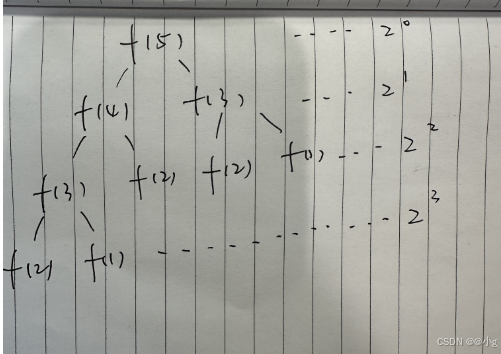 f(5) ---- 2⁰
f(4) f(3) ---- 2¹
f(3) f(2) f(2) f(1) ---- 2²
f(2) f(1) ------------ 2³
CSDN @@小g